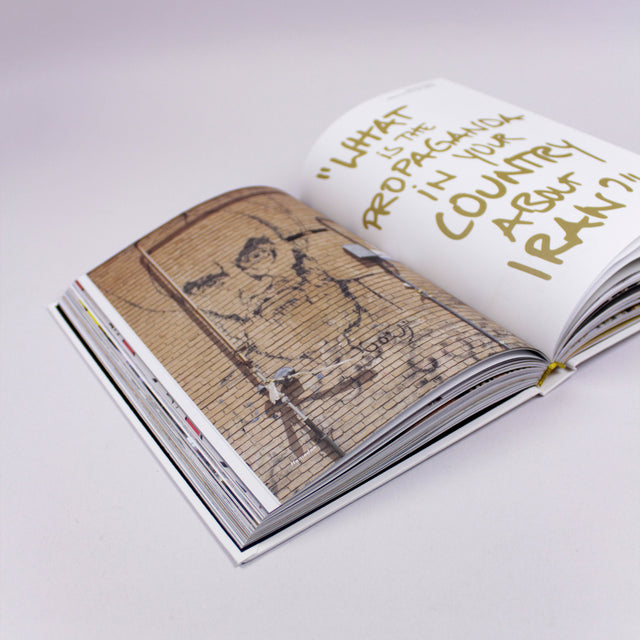 "WHAT
IS THE
PROPAGANDA
IN YOUR
COUNTRY
ABOUT
IRAN?"